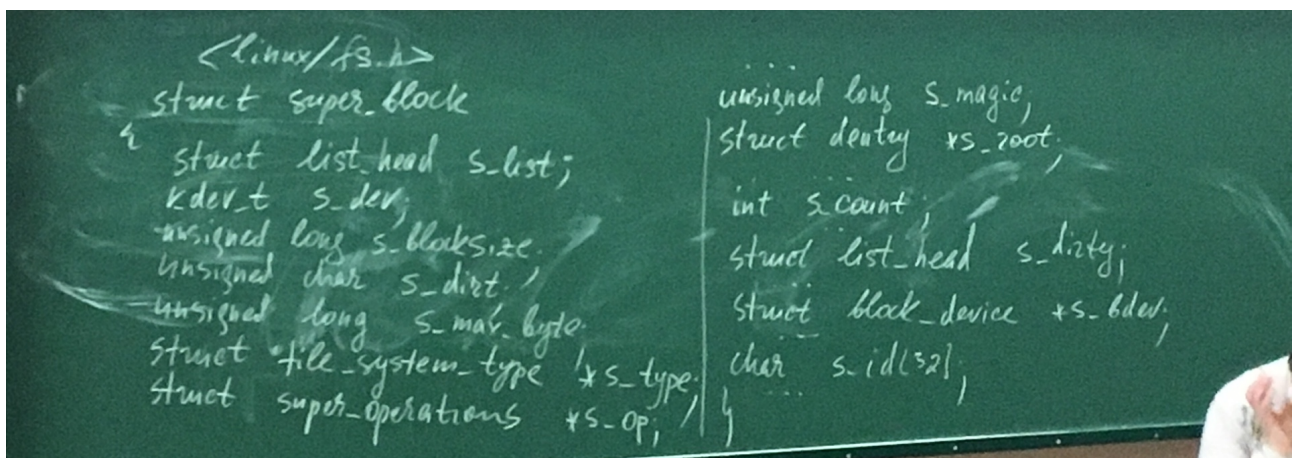 <linux/fs.h>
struct super_block
{
struct list_head s_list;
kdev_t s_dev;
unsigned long s_blocksize;
unsigned char s_dirt;
unsigned long s_max_byte;
struct file_system_type *s_type;
struct super_operations *s_op;
....
unsigned long s_magic;
struct dentry *s_root;
...
int s_count;
...
struct list_head s_dirty;
...
struct block_device *s_bdev;
...
char s_id[32];
....
}